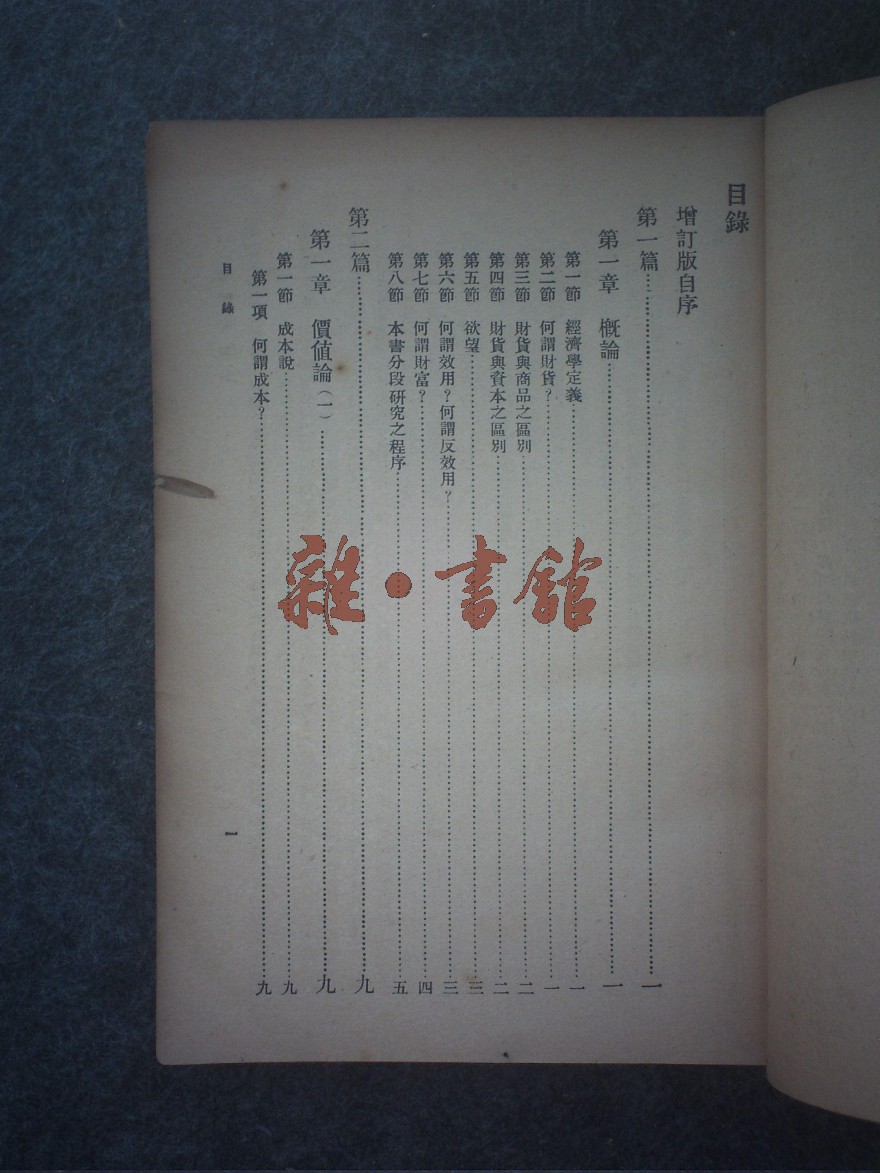 目錄
增訂版自序
第一篇……一
第一章 概論……一
第一節 經濟學定義……一
第二節 何謂財貨?……一
第三節 財貨與商品之區別……二
第四節 財貨與資本之區別……二
第五節 欲望……三
第六節 何謂效用?何謂反效用?……三
第七節 何謂財富?……四
第八節 本書分段研究之程序……五
第二篇……九
第一章 價值論(一)……九
第一節 成本說……九
第一項 何謂成本?……九
目錄
一
雜·書館